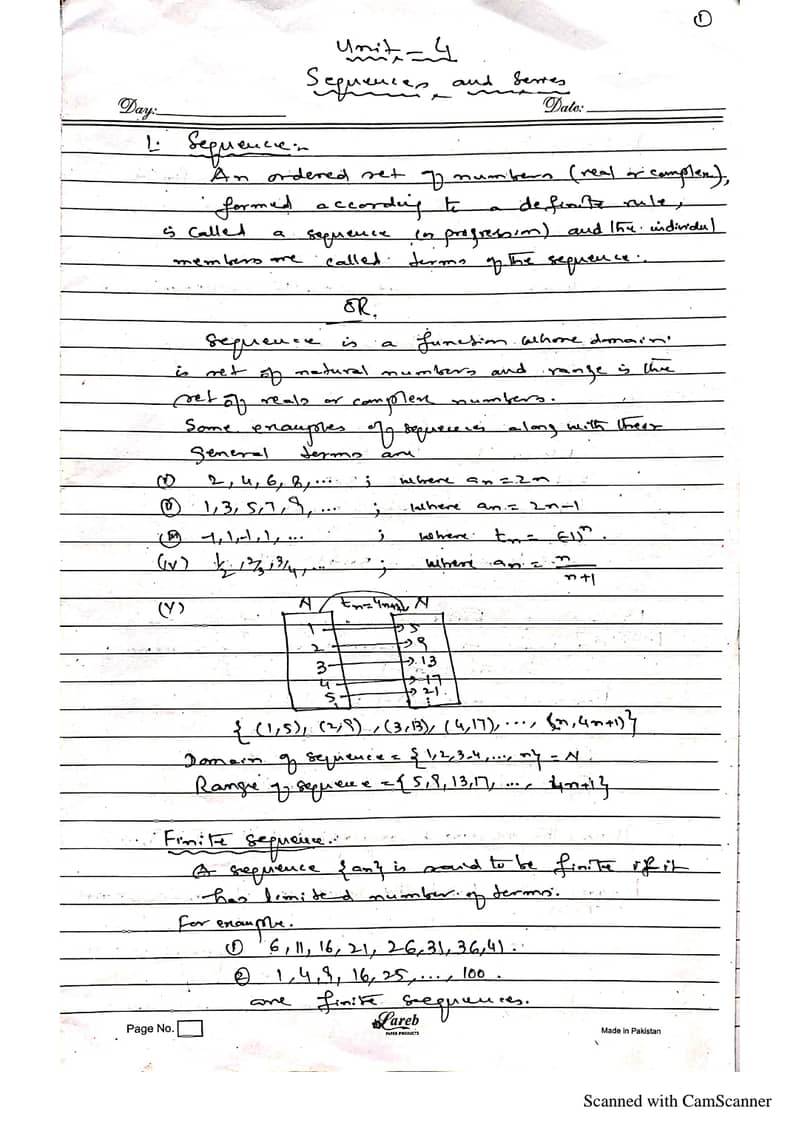 ①
Unit - 4
Sequences and Series
Day: Date:
1. Sequence:-
An ordered set of numbers (real or complex),
formed according to a definite rule,
is called a sequence (or progression) and the individual
members are called terms of the sequence.
OR,
Sequence is a function whose domain
is set of natural numbers and range is the
set of reals or complex numbers.
Some examples of sequences along with their
general terms are
(i) 2, 4, 6, 8, ... ; where an = 2n
(ii) 1, 3, 5, 7, 9, ... ; where an = 2n-1
(iii) -1, 1, -1, 1, ... ; where tn = (-1)^n.
(iv) 1/2, 2/3, 3/4, ... ; where an = n/n+1
(v) N tn=4n+1 N
1 → 5
2 → 9
3 → 13
4 → 17
5 → 21
{ (1,5), (2,9), (3,13), (4,17), ..., (n, 4n+1)}
Domain of sequence = {1,2,3,4,..., n} = N
Range of sequence = {5,9,13,17, ..., 4n+1}
Finite sequence:-
A sequence {an} is said to be finite if it
has limited number of terms.
For example.
① 6, 11, 16, 21, 26, 31, 36, 41.
② 1, 4, 9, 16, 25, ..., 100.
are finite sequences.
Page No. Lareb PAPER PRODUCTS Made in Pakistan
Scanned with CamScanner